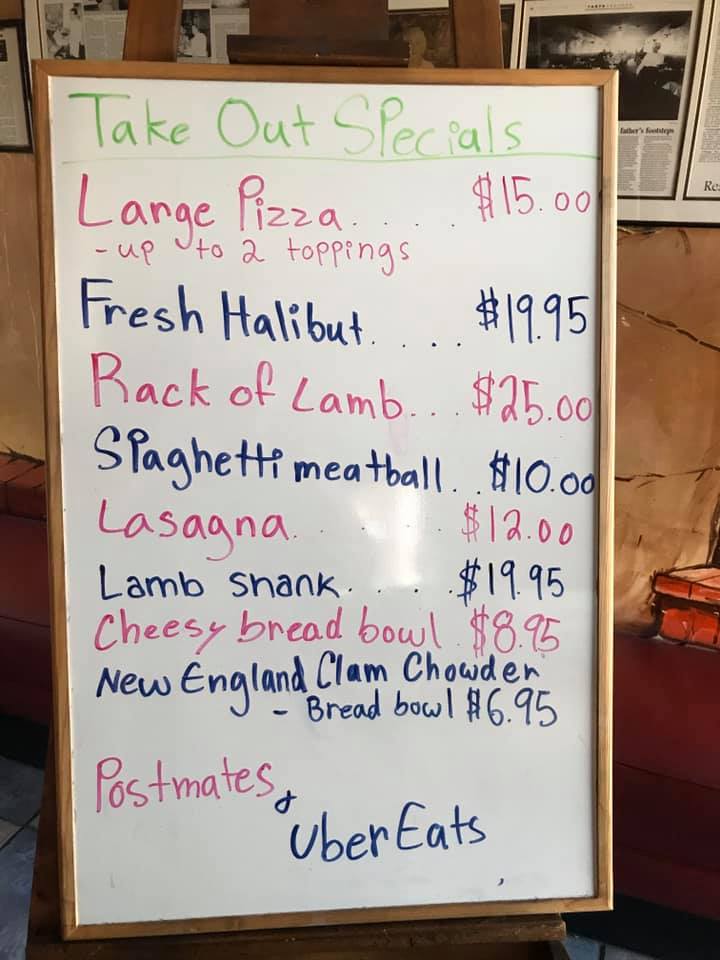 Take Out Specials
Large Pizza..... $15.00
- up to 2 toppings
Fresh Halibut..... $19.95
Rack of Lamb... $25.00
Spaghetti meatball.. $10.00
Lasagna..... $12.00
Lamb shank..... $19.95
Cheesy bread bowl $8.95
New England Clam Chowder
- Bread bowl $6.95
Postmates &
Uber Eats
father's footsteps